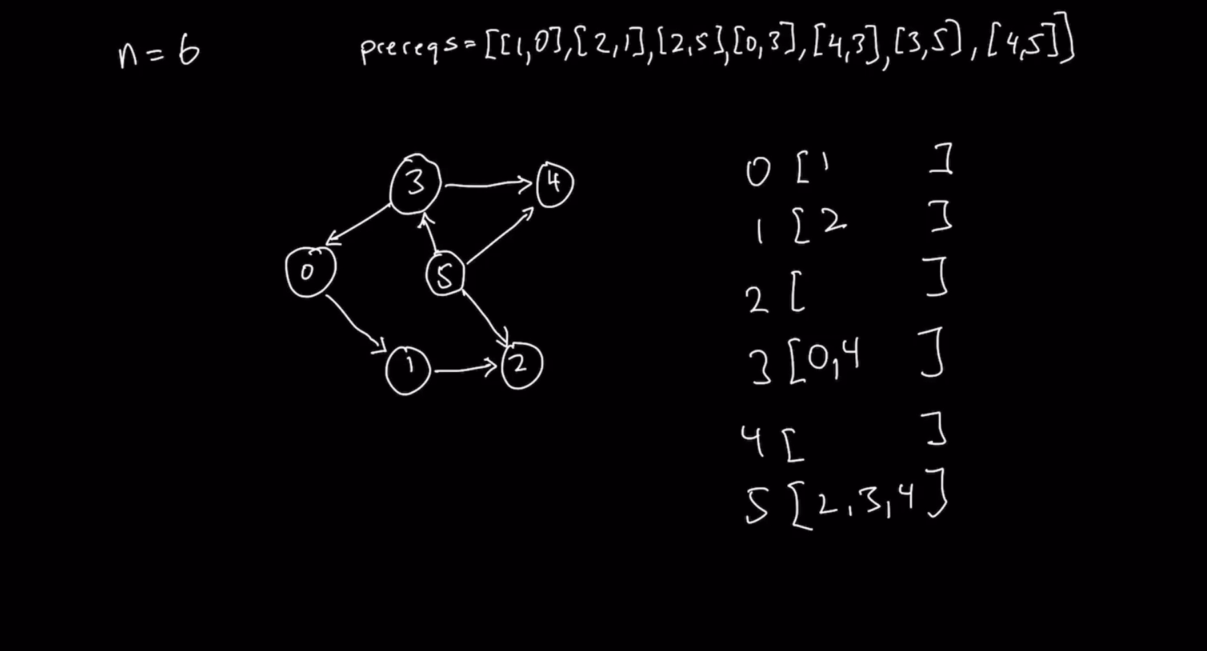 n = 6
prereqs = [[1,0],[2,1],[2,5],[0,3],[4,3],[3,5],[4,5]]
3
4
0
5
1
2
0 [1 ]
1 [2 ]
2 [ ]
3 [0,4 ]
4 [ ]
5 [2,3,4]